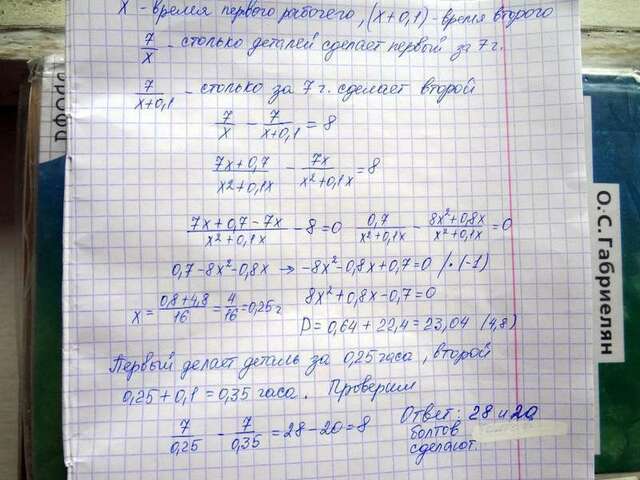 X - время первого рабочего, (x+0,1) - время второго
7/x - столько деталей сделает первый за 7 г.
7/(x+0,1) - столько за 7 г. сделает второй
7/x - 7/(x+0,1) = 8
(7x+0,7)/(x²+0,1x) - 7x/(x²+0,1x) = 8
(7x+0,7-7x)/(x²+0,1x) - 8 = 0   0,7/(x²+0,1x) - (8x²+0,8x)/(x²+0,1x) = 0
0,7-8x²-0,8x → -8x²-0,8x+0,7=0 /·(-1)
8x²+0,8x-0,7=0
x = (0,8+4,8)/16 = 4/16 = 0,25 г
D = 0,64+22,4=23,04 (4,8)
Первый делает деталь за 0,25 часа, второй
0,25+0,1=0,35 часа. Проверим
7/0,25 - 7/0,35 = 28-20=8
Ответ: 28 и 20
болтов
сделают.
О.С. Габриелян